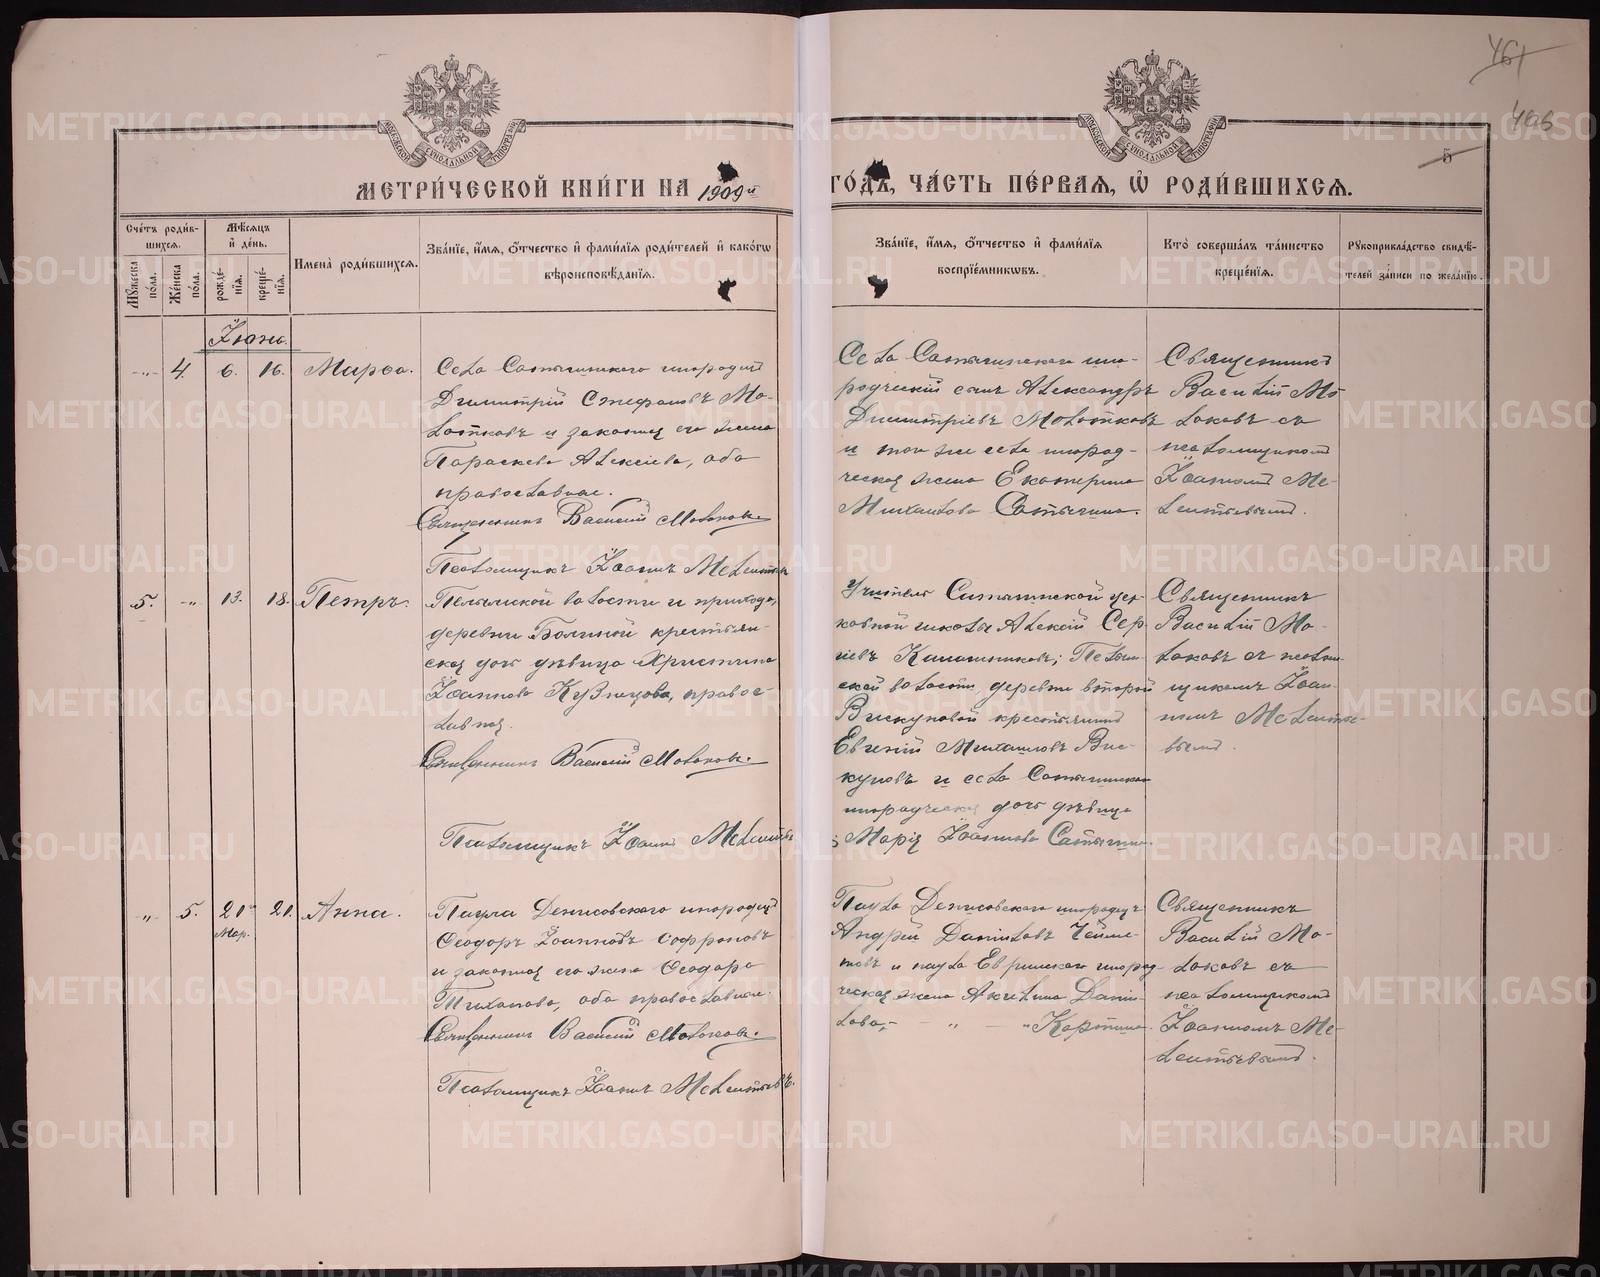 461
496
5
МОСКОВСКОЙ СѴНОДАЛЬНОЙ ТИПОГРАФІИ
МОСКОВСКОЙ СѴНОДАЛЬНОЙ ТИПОГРАФІИ
МЕТРИ́ЧЕСКОЙ КНИ́ГИ НА 1909й ГО́ДЪ, ЧА́СТЬ ПЕ́РВАЯ, Ѽ РОДИ́ВШИХСЯ.
Сче́тъ роди́в-
шихся.
Мꙋ́жеска по́ла.
Же́нска по́ла.
Мѣ́сяцъ
и҆ де́нь.
рожде́нїя.
креще́нїя.
И҆мена̀ роди́вшихся.
Зва́нїе, и҆́мя, ѻ҆́тчество и҆ фами́лїя роди́телей и҆ како́гѡ
вѣроисповѣ́данїя.
Зва́нїе, и҆́мя, ѻ҆́тчество и҆ фами́лїя
воспрїе́мникѡвъ.
Кто̀ соверша́лъ та́инство
креще́нїя.
Рꙋкоприкла́дство свидѣ́-
телей за́писи по жела́нїю.
Іюнь.
-„- 4. 6. 16. Марѳа.
Села Сатыгинскаго инородецъ
Димитрій Стефановъ Мо-
лотковъ и законная его жена
Параскева Алексіева, оба
православные.
Священникъ Василій Молоковъ.
Псаломщикъ Іоаннъ Мелентьевъ
Села Сатыгинскаго ино-
родческій сынъ Александръ
Димитріевъ Молотковъ
и того же села инород-
ческая жена Екатерина
Михаилова Сатыгина.
Священникъ
Василій Мо-
локовъ съ
псаломщикомъ
Іоанномъ Ме-
лентьевымъ.
5. -„ 13. 18. Петръ.
Пелымской волости и прихода,
деревни крестьян-
ская дочь дѣвица Христина
Іоаннова Кузнецова, правос-
лавная.
Священникъ Василій Молоковъ.
Псаломщикъ Іоаннъ Мелентьевъ
Учитель Сатыгинской цер-
ковной школы Алексій Сер-
гіевъ Калашниковъ; Пелым-
ской волости, деревни второй
Вискуновой крестьянинъ
Евгеній Михаиловъ Вис-
куновъ и села Сатыгинскаго
инородческая дочь дѣвица
Марія Іоаннова Сатыгина.
Священникъ
Василій Мо-
локовъ съ псалом-
щикомъ Іоан-
номъ Мелентье-
вымъ.
„ 5. 20 21. Анна.
Мар.
Паула Денисовскаго инородецъ
Ѳеодоръ Іоанновъ Софроновъ
и законная его жена Ѳеодора
Тиханова, оба православные.
Священникъ Василій Молоковъ.
Псаломщикъ Іоаннъ Мелентьевъ.
Паула Денисовскаго инородецъ
Андрей Даніиловъ Чейме-
товъ и паула Евринскаго инород-
ческая жена Акилина Даніи-
лова,- „ - „Картина.
Священникъ
Василій Мо-
локовъ съ
псаломщикомъ
Іоанномъ Ме-
лентьевымъ.
METRIKI.GASO-URAL.RU